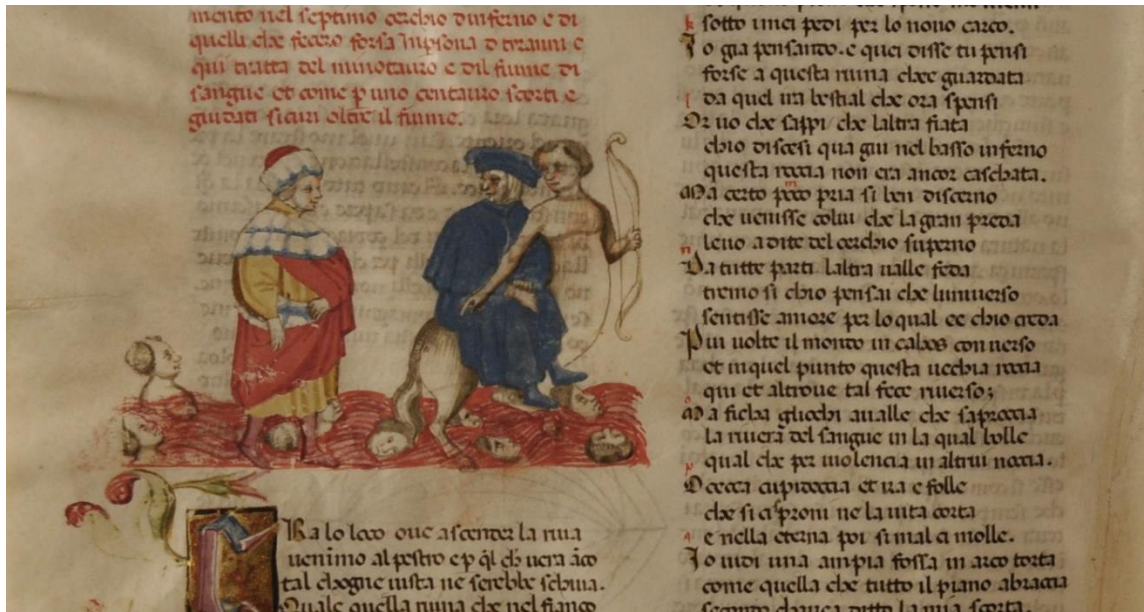 mento nel septimo cerchio dinferno e di
quelli che fecero forsa in psona d tiranni e
qui tratta del minotauro e dil fiume di
sangue et come p uno centauro scorti e
guidati sicuri oltre il fiume.
Era lo loco oue a scender la riua
uenimo alpestro e p q̄l ch uera āco
tal chogne uista ne serebbe schiua.
Quale quella ruina che nel fianco
sotto i miei pedi per lo nouo carco.
Io gia pensando. e quei disse tu pensi
forse a questa ruina chee guardata
da quel ira bestial che ora spensi
Or uo che sappi che laltra fiata
chio discesi qua giu nel basso inferno
questa roccia non era ancor caschata.
Ma certo poco pria si ben discerno
che uenisse colui che la gran preda
leuo a dite del cerchio superno
Da tutte parti laltra ualle feda
tremo si chio pensai che luniuerso
sentisse amore per lo qual ee chio creda
Piu uolte il mondo in caos conuerso
et in quel punto questa uecchia roccia
qui et altroue tal fece riuerso;
Ma ficha gliocchi aualle che saproccia
la riuera del sangue in la qual bolle
qual che per uiolencia in altrui noccia.
O cecca cupidiccia et ira e folle
che si ci sproni ne la uita corta
e nella eterna poi si mal ci molle.
Io uidi una ampia fossa in arco torta
come quella che tutto il piano abraccia
secondo chauea ditto la mia scorta.